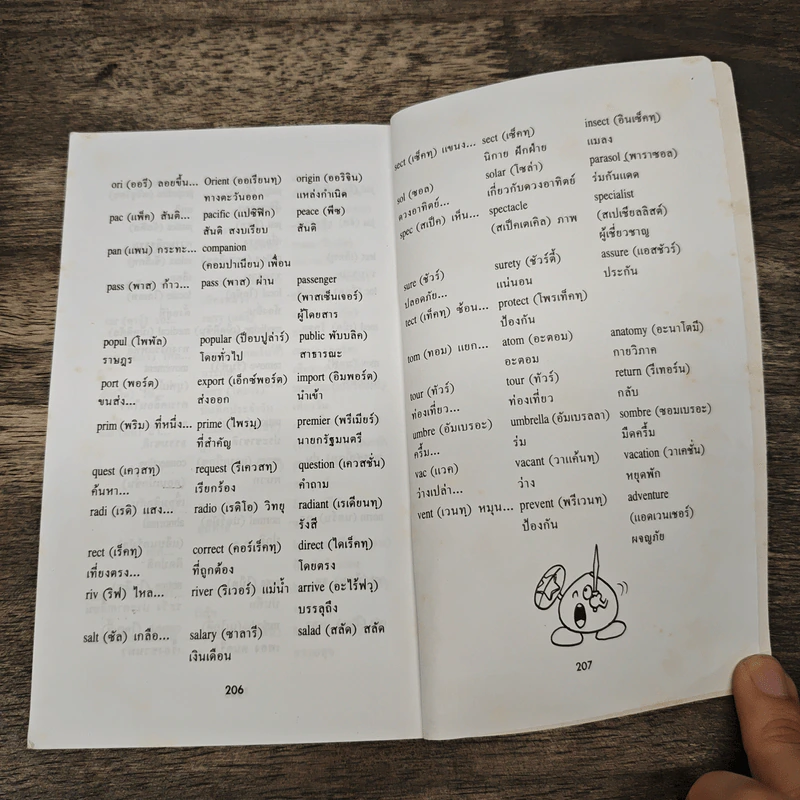 ori (ออรี) ลอยขึ้น... Orient (ออเรียนทฺ) origin (ออริจิน)
ทางตะวันออก แหล่งกำเนิด
pac (แพ็ค) สันติ... pacific (แปซิฟิก) peace (พีซ)
สันติ สงบเรียบ สันติ
pan (แพน) กระทะ... companion
(คอมปาเนียน) เพื่อน
pass (พาส) ก้าว... pass (พาส) ผ่าน passenger
(พาสเซ็นเจอร์)
ผู้โดยสาร
popul (ไพพัล) popular (ป๊อบปูล่าร์) public พับบลิค)
ราษฎร โดยทั่วไป สาธารณะ
port (พอร์ต) export (เอ็กซ์พอร์ต) import (อิมพอร์ต)
ขนส่ง... ส่งออก นำเข้า
prim (พริม) ที่หนึ่ง... prime (ไพรมฺ) premier (พรีเมียร์)
ที่สำคัญ นายกรัฐมนตรี
quest (เควสทฺ) request (รีเควสทฺ) question (เควสชั่น)
ค้นหา... เรียกร้อง คำถาม
radi (เรดิ) แสง... radio (เรดิโอ) วิทยุ radiant (เรเดียนทฺ)
รังสี
rect (เร็คทฺ) correct (คอร์เร็คทฺ) direct (ไดเร็คทฺ)
เที่ยงตรง... ที่ถูกต้อง โดยตรง
riv (ริฟ) ไหล... river (ริเวอร์) แม่น้ำ arrive (อะไร้ฟวฺ)
บรรลุถึง
salt (ซัล) เกลือ... salary (ซาลารี) salad (สลัด) สลัด
เงินเดือน
206
sect (เซ็คทฺ) แขนง... sect (เซ็คทฺ) insect (อินเซ็คทฺ)
นิกาย ฝักฝ่าย แมลง
sol (ซอล) solar (โซล่า) parasol (พาราซอล)
ดวงอาทิตย์... เกี่ยวกับดวงอาทิตย์ ร่มกันแดด
spec (สเป็ค) เห็น... spectacle specialist
(สเป็คเตเคิล) ภาพ (สเปเชียลลิสต์)
ผู้เชี่ยวชาญ
sure (ชัวร์) surety (ชัวร์ตี้) assure (แอสชัวร์)
ปลอดภัย... แน่นอน ประกัน
tect (เท็คทฺ) ซ้อน... protect (โพรเท็คทฺ)
ป้องกัน
tom (ทอม) แยก... atom (อะตอม) anatomy (อะนาโตมี)
อะตอม กายวิภาค
tour (ทัวร์) tour (ทัวร์) return (รีเทอร์น)
ท่องเที่ยว... ท่องเที่ยว กลับ
umbre (อัมเบรอะ) umbrella (อัมเบรลลา) sombre (ซอมเบรอะ)
ครึ้ม... ร่ม มืดครึ้ม
vac (แวค) vacant (วาแค้นทฺ) vacation (วาเคชั่น)
ว่างเปล่า... ว่าง หยุดพัก
vent (เวนทฺ) หมุน... prevent (พรีเวนทฺ) adventure
ป้องกัน (แอดเวนเชอร์)
ผจญภัย
207